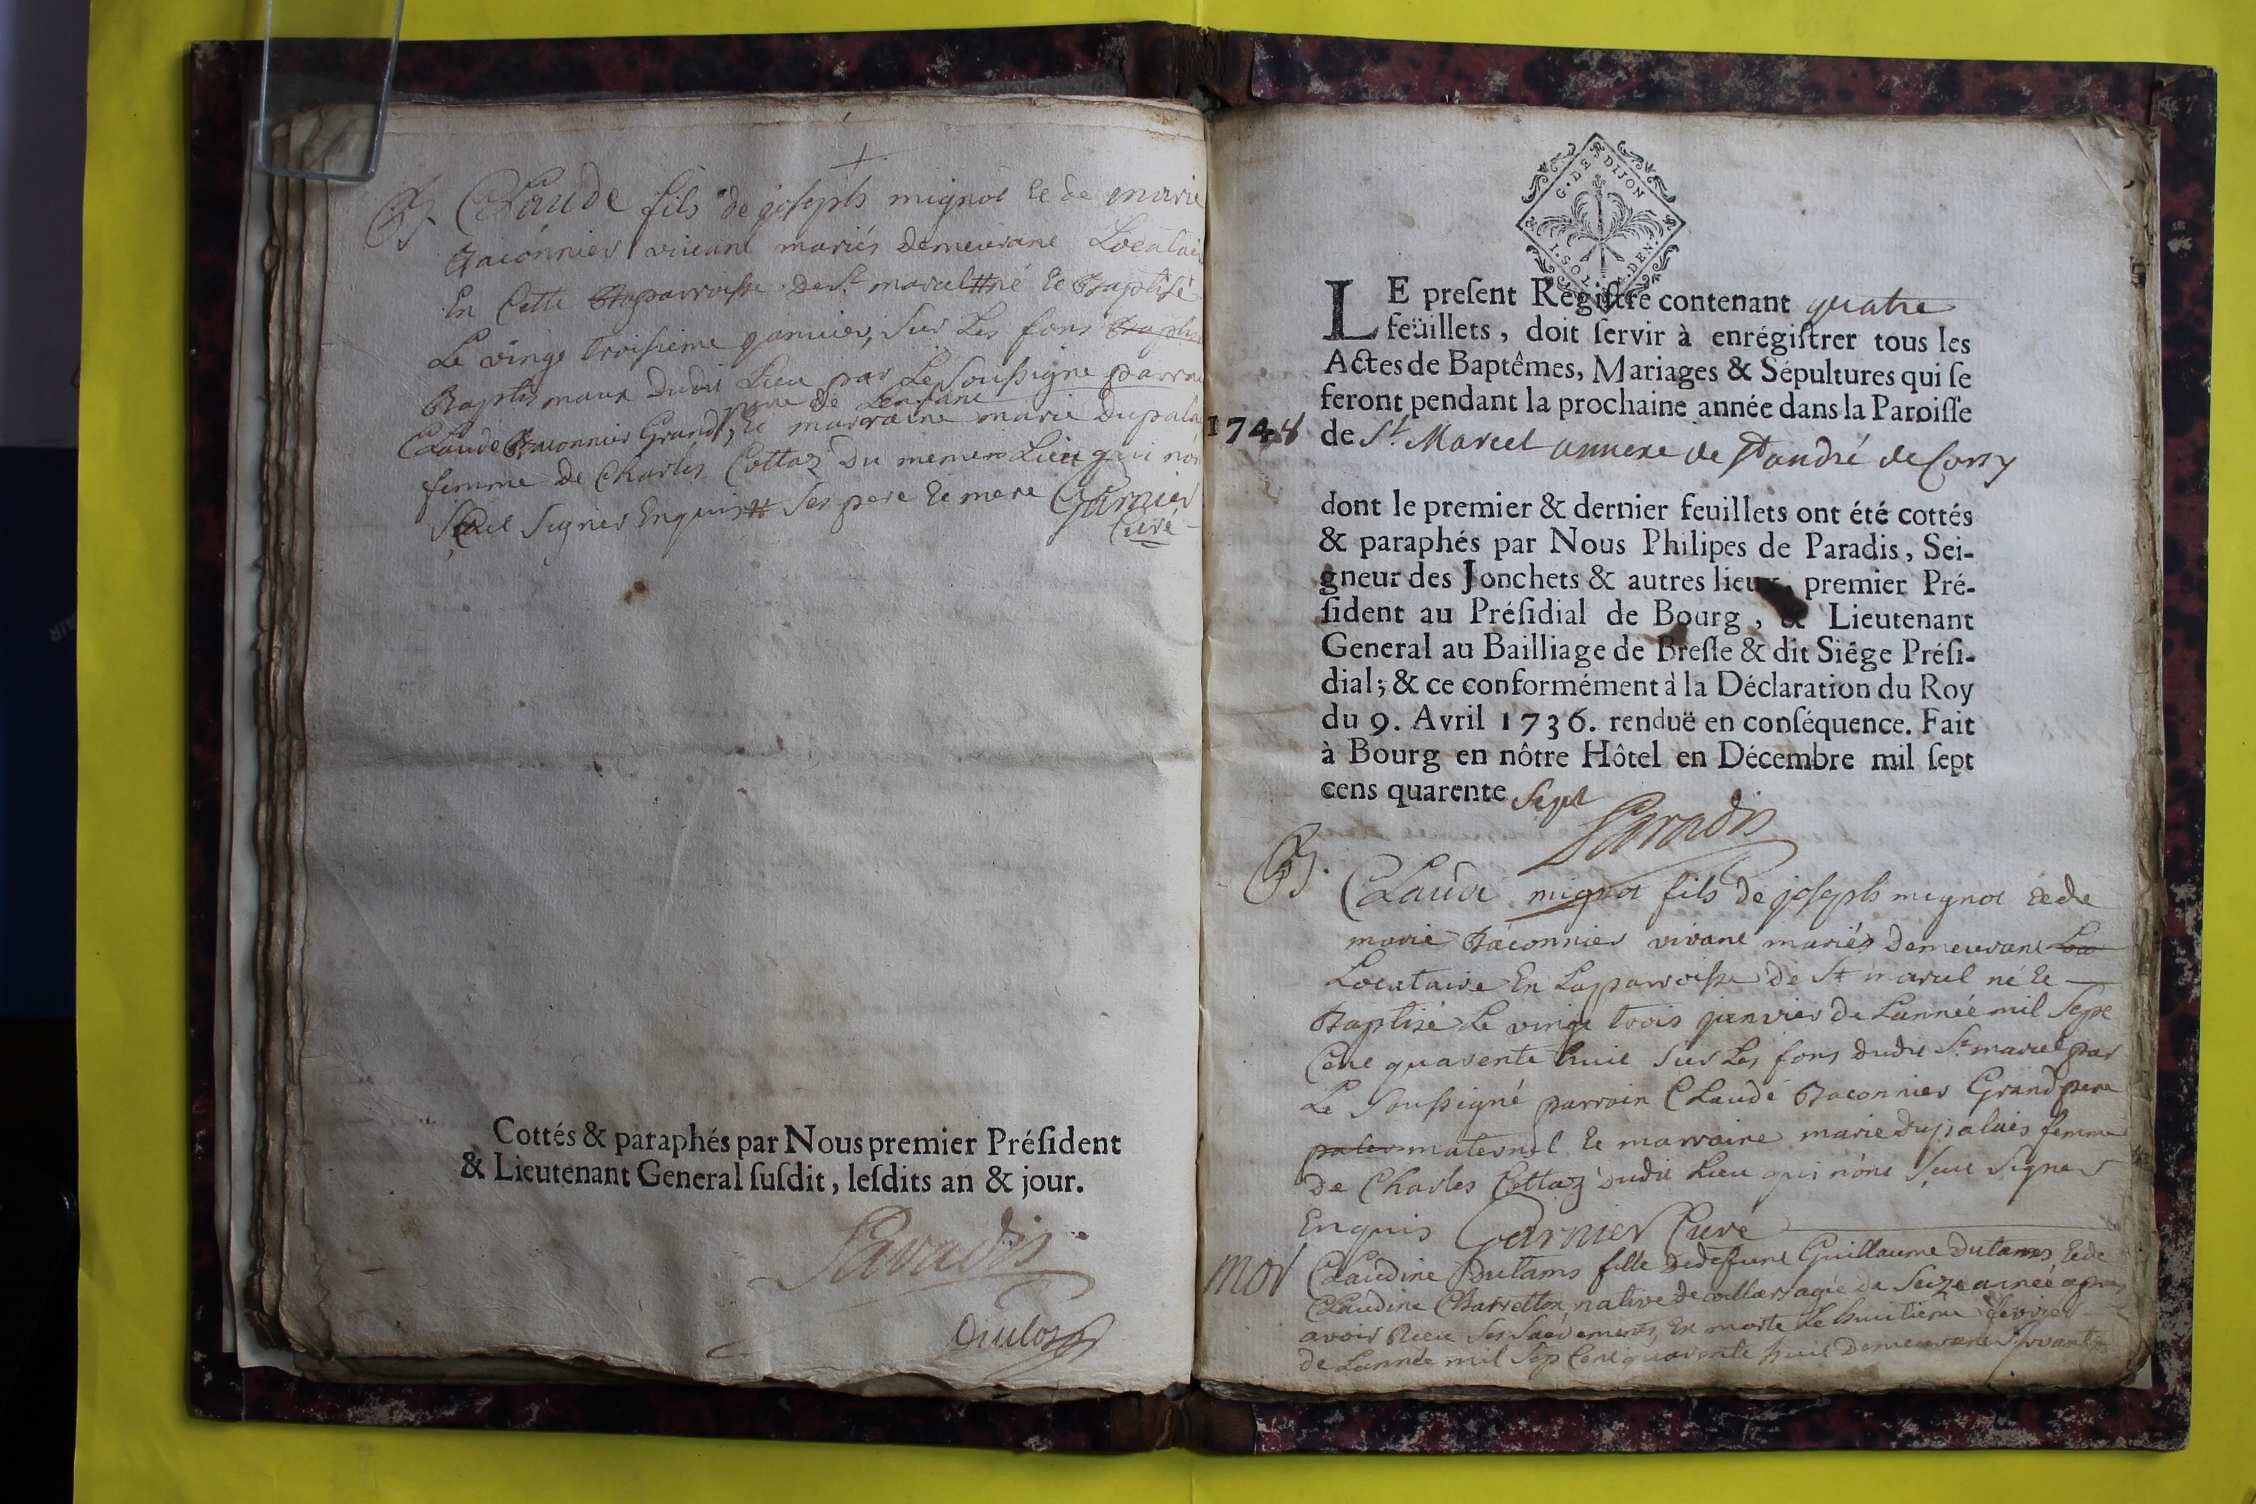 B. Claude fils de joseph mignot et de marie
Baconnier vivant mariés demeurant Locatai
En Cette parroisse de St marcel né et Baptisé
Le vingt troisieme janvier, sur Les fons
Baptismaux dudit Lieu par Le Soussigné parra
pere de Lenfant
Claude Baconnier Grand, et marraine marie dupala
femme de Charles Cottaz du meme Lieu qui non
Sceu signer Enquis ses pere et mere Garnier
Curé
Cottés & paraphés par Nous premier Présìdent
& Lieutenant General susdit, lesdits an & jour.
Paradis
G. DE DIJON
I. SOL. M. DEN.
LE present Registre contenant quatre
feüillets, doit servir à enrégistrer tous les
Actes de Baptêmes, Mariages & Sépultures qui se
feront pendant la prochaine année dans la Paroisse
1748 de St Marcel annexe de St andré de Corsy
dont le premier & dernier feuillets ont été cottés
& paraphés par Nous Philipes de Paradis, Sei-
gneur des Jonchets & autres lieux, premier Pré-
sident au Présidial de Bourg, & Lieutenant
General au Bailliage de Bresse & dit Siége Prési-
dial; & ce conformément à la Déclaration du Roy
du 9. Avril 1736. renduë en conséquence. Fait
à Bourg en nôtre Hôtel en Décembre mil sept
cens quarente sept
Paradis
B. Claude mignot fils de joseph mignot et de
marie Baconnier vivant mariés demeurant
Locataire En Laparroisse de St marcel né et
Baptisé Le vingt trois janvier de Lannée mil sept
Cent quarente huit sur Les fons dudit St marcel par
Le Soussigné parrain Claude Baconnier Grand pere
maternel et marraine marie dupalais femme
de Charles Cottaz dudit Lieu qui nont sceu signer
Enquis Garnier Curé
mor Claudine Dutams fille de defunt Guillaume Dutams et de
Claudine Charretton native de villars agée de Seize année apres
avoir Receu ses Sacrements, Est morte Le huitieme fevrier
de Lannée mil sep Cent quarente huit demeurant servante